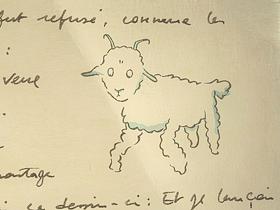 fut refusé, comme les
:
verse
montage
ce dessin-ci: Et je lançai